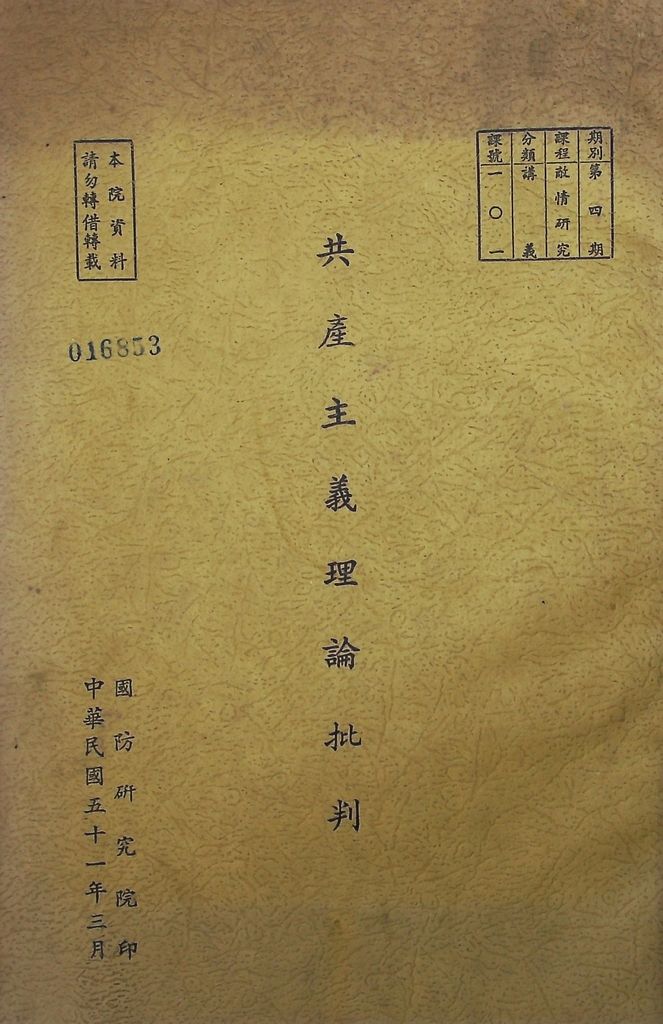 期別第四期
課程敵情研究
分類講義
課號一〇一
共產主義理論批判
本院資料
請勿轉借轉載
016853
國防研究院印
中華民國五十一年三月